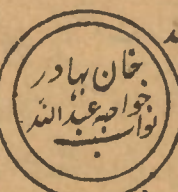 خان بہادر
خواجہ عبد اللہ
نواب